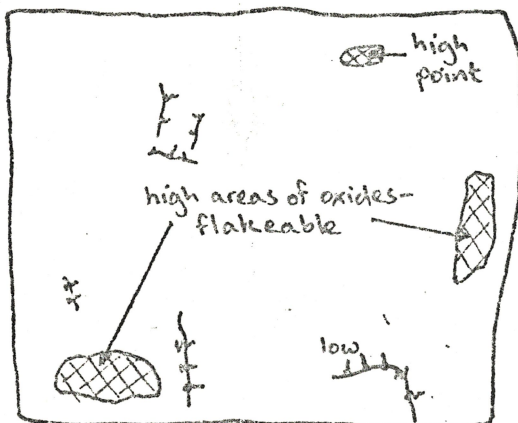 high
point
high areas of oxides-
flakeable
low